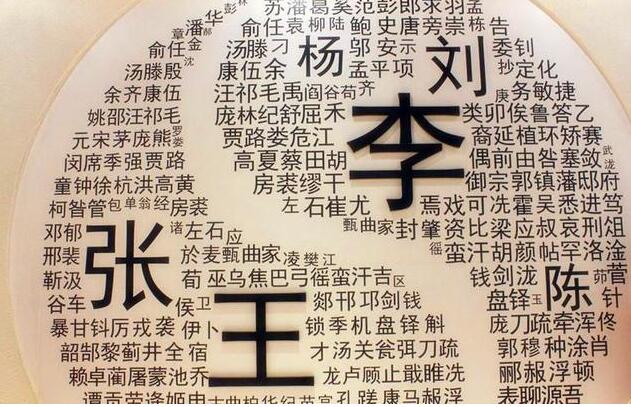 苏潘葛奚范彭郎
鲁
俞任袁柳陆鲍史唐
汤滕刁
杨
刘
李
告
委钊
抄定化
庚务敏捷
类卯俟鲁答乙
裔延植环矫赛
偶前由昝塞敛
武泷
御宗郭镇潘邸府
焉戏可冼霍吴悉进笃
封肇资比梁应叔哀刑俎
徭蛮汗胡颜帖罕洛淦
钱剑泷
陈
茆菅
盘铎玉
针
庞刀疏牵浑佟
郭穆种涂肖
郦郝浮顿
表聊源吾
潘华
章金
俞任
沈
汤滕殷
康伍余
邬安
孟平项
余齐康伍
汪祁毛禹阎谷苟齐
姚邵汪祁毛
庞林纪舒屈项
元宋茅庞熊罗娄
贾路娄危江
闵席季强贾路
高夏蔡田胡
童钟徐杭洪高黄
房裘缪干
柯昝管包单翁经房裘
左石崔尤
甄曲家
邓郁
诸左石应
邢裴
张
於麦甄曲家凌樊江
靳汲
荀巫乌焦巴弓徭蛮汗吉区
谷车
侯卫
王
郯邗邛剑钱
暴甘钭厉戎袭
伊卜
锁季机盘铎斛
韶郜黎蓟井全宿
才汤关瓮弭刀疏
赖卓蔺屠蒙池乔
龙卢顾止戢睢冼
谭贡劳逄姬申
孔蹉康马郝浮